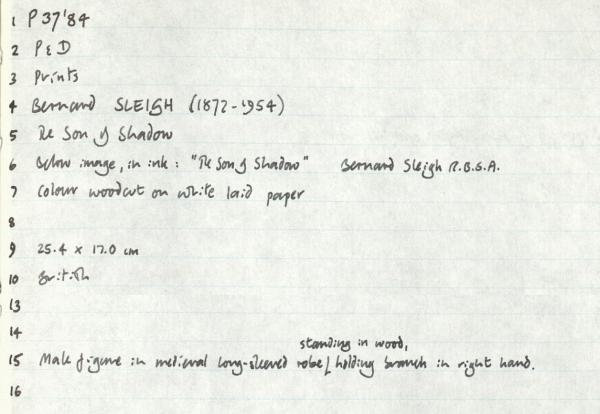 1 P 37'84
2 P & D
3 Prints
4 Bernard SLEIGH (1872-1954)
5 The Son of Shadow
6 Below image, in ink: "The Son of Shadow" Bernard Sleigh R.B.S.A.
7 Colour woodcut on white laid paper
8
9 25.4 x 17.0 cm
10 British
13
14
standing in wood,
15 Male figure in medieval long-sleeved robe/ holding branch in right hand.
16